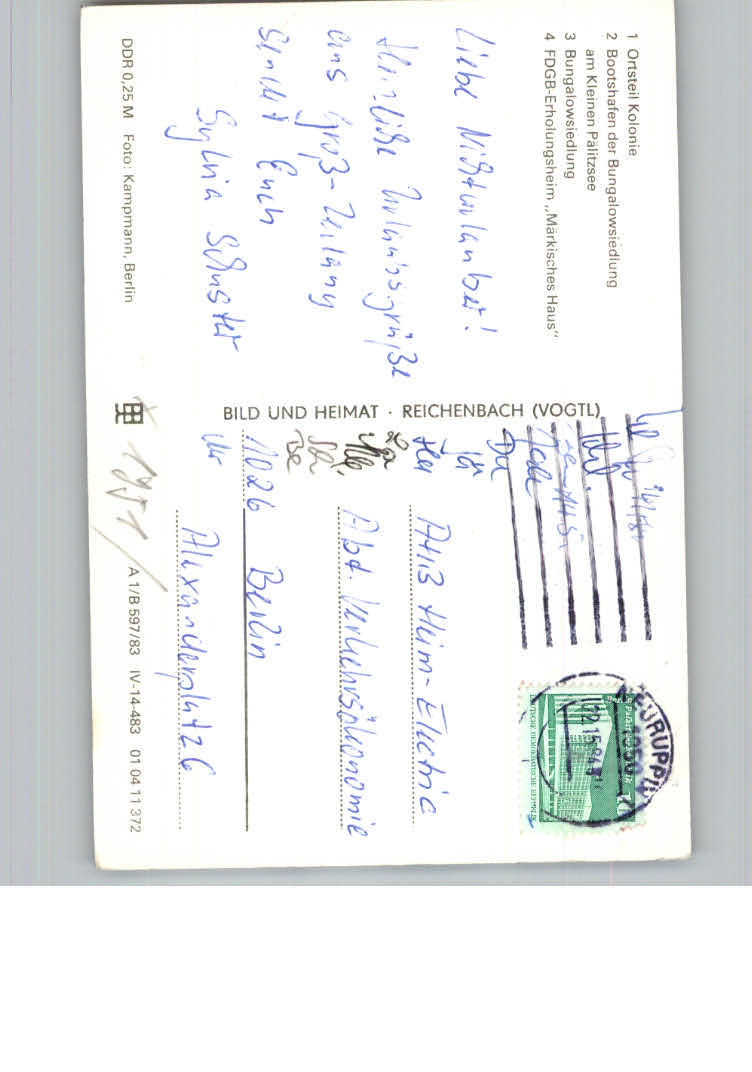 1 Ortsteil Kolonie
2 Bootshafen der Bungalowsiedlung
am Kleinen Pälitzsee
3 Bungalowsiedlung
4 FDGB-Erholungsheim „Märkisches Haus“
Liebe Nichturlauber!
Herzliche Urlaubsgrüße
aus Groß-Zerlang
sendet Euch
Sylvia Schuster
DDR 0,25 M Foto: Kampmann, Berlin
BILD UND HEIMAT · REICHENBACH (VOGTL)
NEURUPPIN
DEUTSCHE DEMOKRATISCHE REPUBLIK
AHB Heim-Electric
Abt. Verkehrsökonomie
1026 Berlin
Alexanderplatz 6
A 1/B 597/83 IV-14-483 01 04 11 372